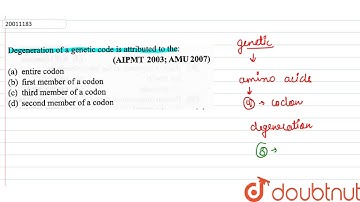 20011183
Degeneration of a genetic code is attributed to the:
(AIPMT 2003; AMU 2007)
(a) entire codon
(b) first member of a codon
(c) third member of a codon
(d) second member of a codon
genetic
amino acids
→ codon
degeneration
→
doubtnut